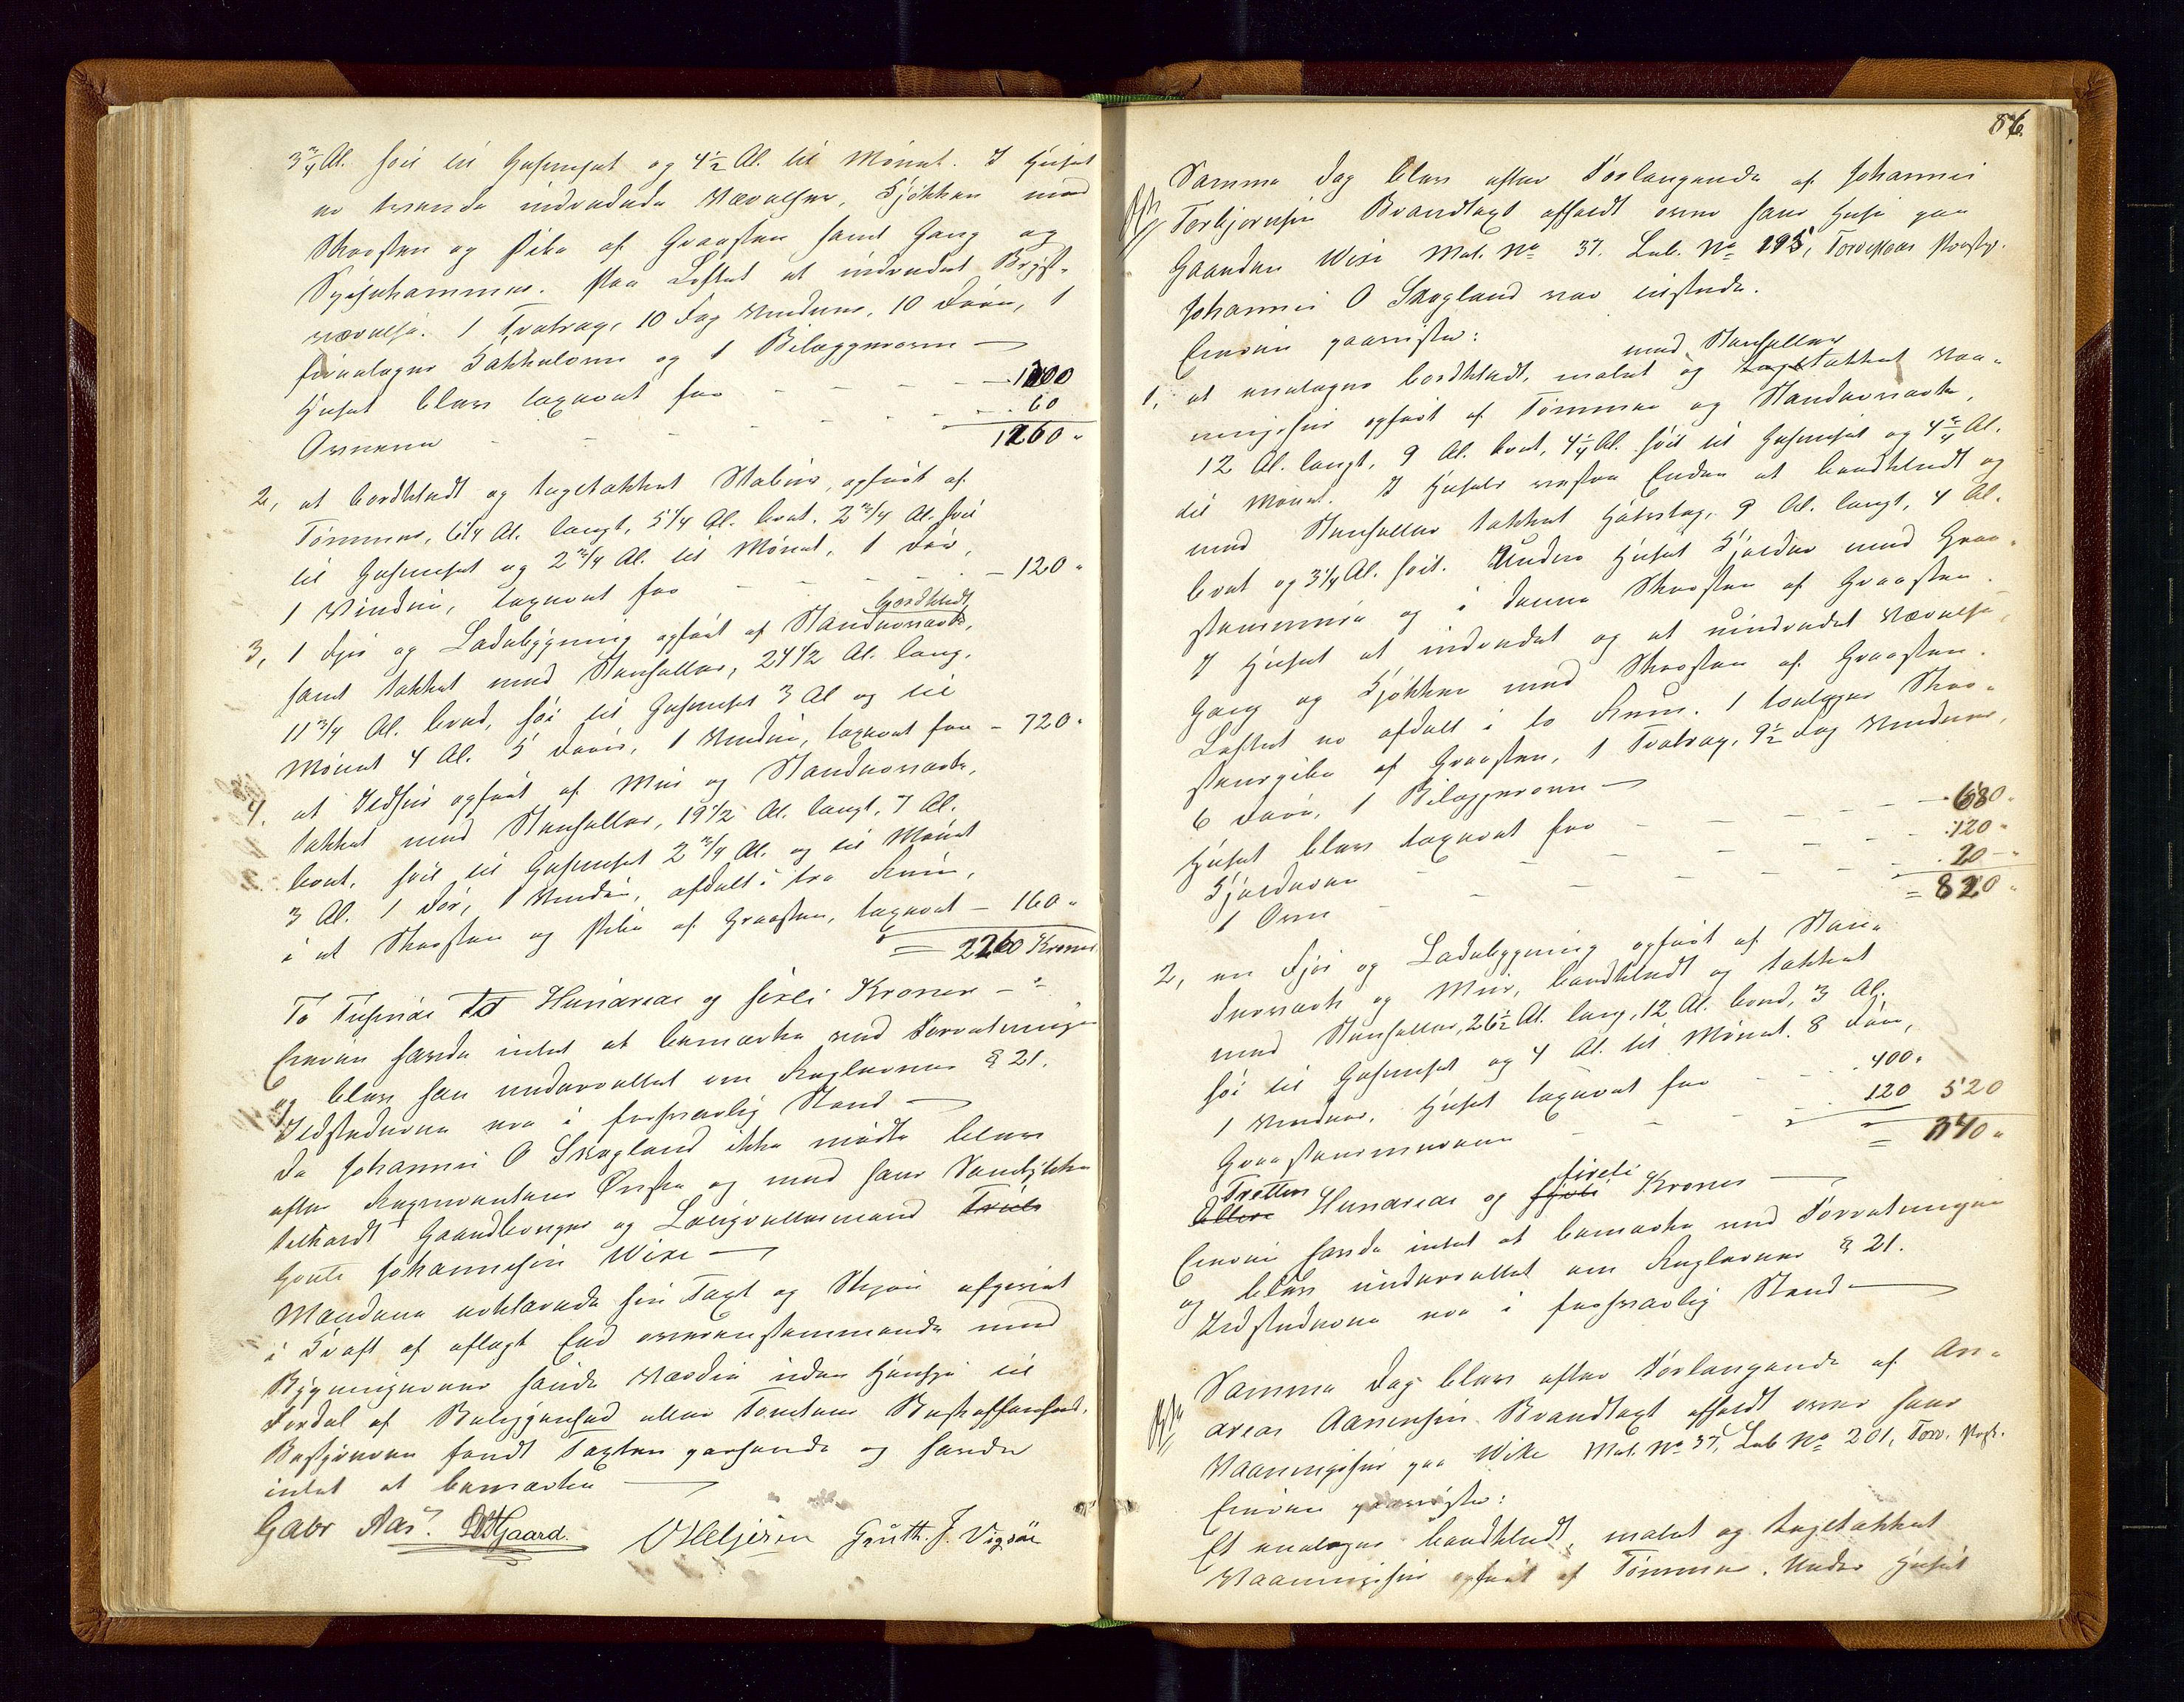 3 3/4 Al. høit til Gesimset og 4 1/2 Al. til Mønet. I Huset
er trende indredede Værelser, Kjøkken med
Skorsten og Pibe af Graasten samt Gang og
Spisekammer. Paa Loftet et indredet Kvist-
værelse. 1 Trætrap, 10 Fag Vinduer, 10 Døre, 1
toetages Kakkelovn og 1 Bilæggerovn —
Huset blev taxeret for - - - - 1200
Ovnene - - - - - 60
1260 "
2, et bordklædt og tagetækket Stabur, opført af
Tømmer, 6 1/4 Al. langt, 5 1/4 Al. bredt, 2 3/4 Al. høit
til Gesimset og 2 3/4 Al. til Mønet, 1 Dør,
1 Vindue, taxeret for - - - - 120 "
bordklædt
3, 1 Fjøs og Ladebygning opført af Standerværk,
samt tækket med Stenheller, 24 1/2 Al. lang,
11 3/4 Al. bred, høi til Gesimset 3 Al og til
Mønet 4 Al. 5 Døre, 1 Vindue, taxeret for - 720 "
4. et Ildhus opført af Mur og Standerværk,
tækket med Stenheller, 19 1/2 Al. langt, 7 Al.
bredt, høit til Gesimset 2 3/4 Al. og til Mønet
3 Al. 1 Dør, 1 Vindue, afdelt i tre Rum,
i et Skorsten og Pibe af Graasten, taxeret - 160 "
= 2260 Kroner
To Tusinde to Hundrede og sexti Kroner -
Eieren havde intet at bemærke ved Forretningen
og blev han underrettet om Reglernes § 21.
Ildstederne var i forsvarlig Stand —
Da Johannes O Skogland ikke mødte blev
efter Reqvirentens Ønske og med hans Samtykke
tilkaldt Gaardbruger og Laugrettesmand
Johannesen Wike —
Mændene erklærede sin Taxt og Skjøn afgivet
i Kraft af aflagt Eed overensstemmende med
Bygningernes sande Værdie uden Hensyn til
Fordel af Beliggenhed eller Tomtens Beskaffenhed.
Bestyreren fandt Taxten passende og havde
intet at bemærke —
Gabr Aas. Gaard. O Heljesen Gruth. J. Vigsøe
86.
Samme Dag blev efter Forlangende af Johannes
Torbjornsen Brandtaxt afholdt over hans Huse paa
Gaarden Wike Mat. No 37. Lub. No 195, Torvestad Præstgj.
Johannes O Skogland var tilstede.
Eieren paaviste:
med Stenheller
1, et enetages bordklædt, malet og tagtækket Vaa-
ningshus opført af Tømmer og Standerværk,
12 Al. langt, 9 Al. bredt, 4 1/4 Al. høit til Gesimset og 4 3/4 Al.
til Mønet. I Husets vestre Ende et bordklædt og
med Stenheller tækket Halvtag, 9 Al. langt, 4 Al.
bredt og 3 1/4 Al. høit. Under Huset Kjælder med Graa-
stensmure og i denne Skorsten af Graasten.
I Huset et indredet og et uindredet Værelse,
Gang og Kjøkken med Skorsten af Graasten.
Loftet er afdelt i to Rum. 1 toetages Skor-
stenspibe af Graasten, 1 Trætrap, 9 1/2 Fag Vinduer,
6 Døre, 1 Bilæggerovn —
Huset blev taxeret for - - - - 680 "
Kjælderen - - - - 120 "
1 Ovn - - - - 20 - "
= 820 "
2, en Fjøs og Ladebygning opført af Stan-
derværk og Mur, bordklædt og tækket
med Stenheller, 26 1/2 Al. lang, 12 Al. bred, 3 Al.
høi til Gesimset og 4 Al. til Mønet. 8 Døre,
1 Vindue, Huset taxeret for - - - 400 "
Graastensmurene - - - 120 520
= 1340 "
Tretten fireti
Elleve Hundrede og Kroner —
Eieren havde intet at bemærke ved Forretningen
og blev underrettet om Reglernes § 21.
Ildstederne var i forsvarlig Stand —
Samme Dag blev efter Forlangende af An-
dreas Aanensen Brandtaxt afholdt over hans
Vaaningshus paa Wike Mat. No 37, Lub No 201, Torv. Præst.
Eieren paaviste:
Et enetages bordklædt, malet og tagetækket
Vaaningshus opført af Tømmer. Under Huset